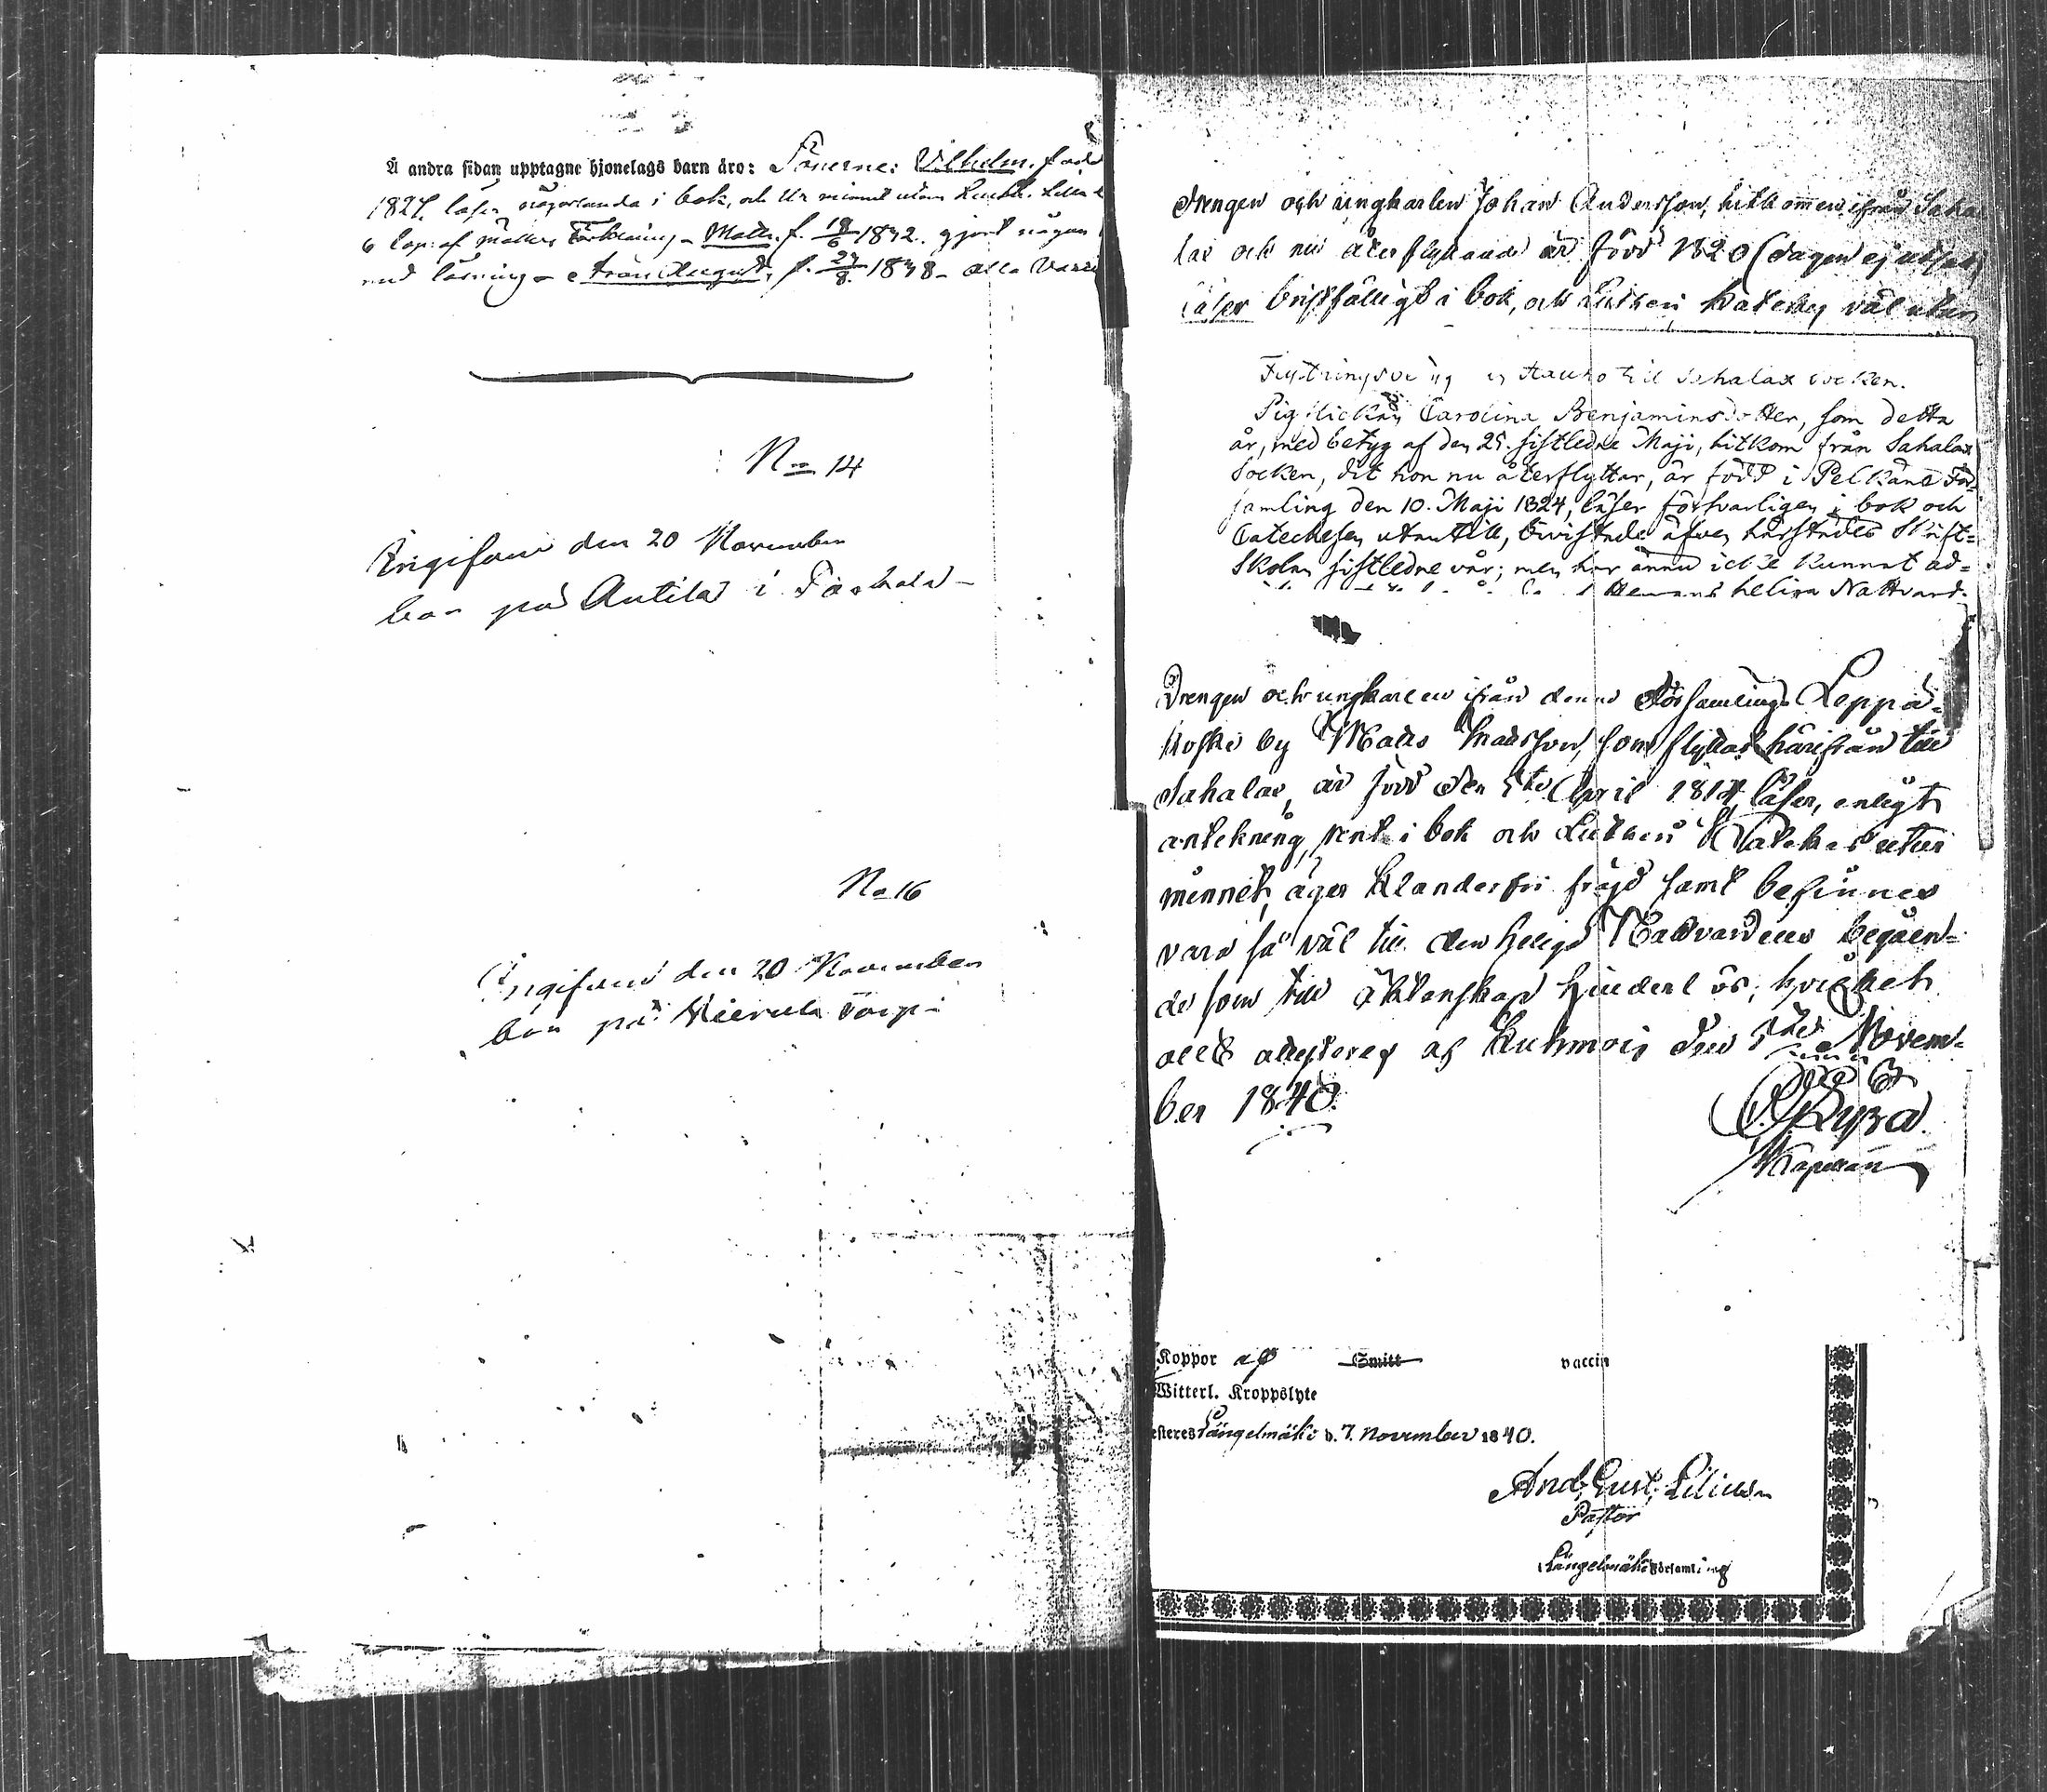 Å andra sidan upptagne hjonelags barn äro: Sönerne: Vilhelm, född
1827, läser någorlunda i bok, och ur minnet utom Luth. Lilla
6 cap. af Möllers Förklaring – Matts, f. 18/6 1832. gjort någon
med läsning – Frans August, f. 27/8 1838 – alla
No 14
Angifven den 20 November
bor på Antila i
No 16
Angifven den 20 November
bor på Torp
Drengen och ungkarlen Johan Andersson, hitkommen ifrån Saha-
lax och nu återflyttande är född 1820 (dagen ej
läser bristfälligt i bok, och Lutheri Cateches väl utan
Flyttningsbetyg Kuuho till Sahalax socken.
Pigflickan Carolina Benjaminsdotter, som detta
år, med betyg af den 25. sistledne Maji, hitkom från Sahalax
Socken, dit hon nu återflyttar, är född i Pelkäne För-
samling den 10. Maji 1824, läser försvarligen i bok och
Catechesen utantill, bivistade äfven härstädes Skrift-
Skolan sistledne vår; men har ännu icke kunnat ad-
heliga Nattvard.
Drengen och ungkarlen ifrån denne Församlings Leppä-
koski by Matts Mattsson, som flyttar härifrån till
Sahalax, är född den 5te April 1817, läser, enligt
antekning, rent i bok och Lutheri Kateches utur
minnet, äger klanderfri frejd samt befinnes
vara så väl till den heliga Nattvardens begåen-
de som till äktenskap hinderlös; hvilket
allt attesteras af Kuhmois den 5te Novem-
ber 1840.
Kyra
Kapellan
Koppor af Smitt vaccin
Witterl. Kroppslyte
esteres Längelmäki d. 7. November 1840.
And. Gust. Lilius
Pastor
Längelmäki Församling